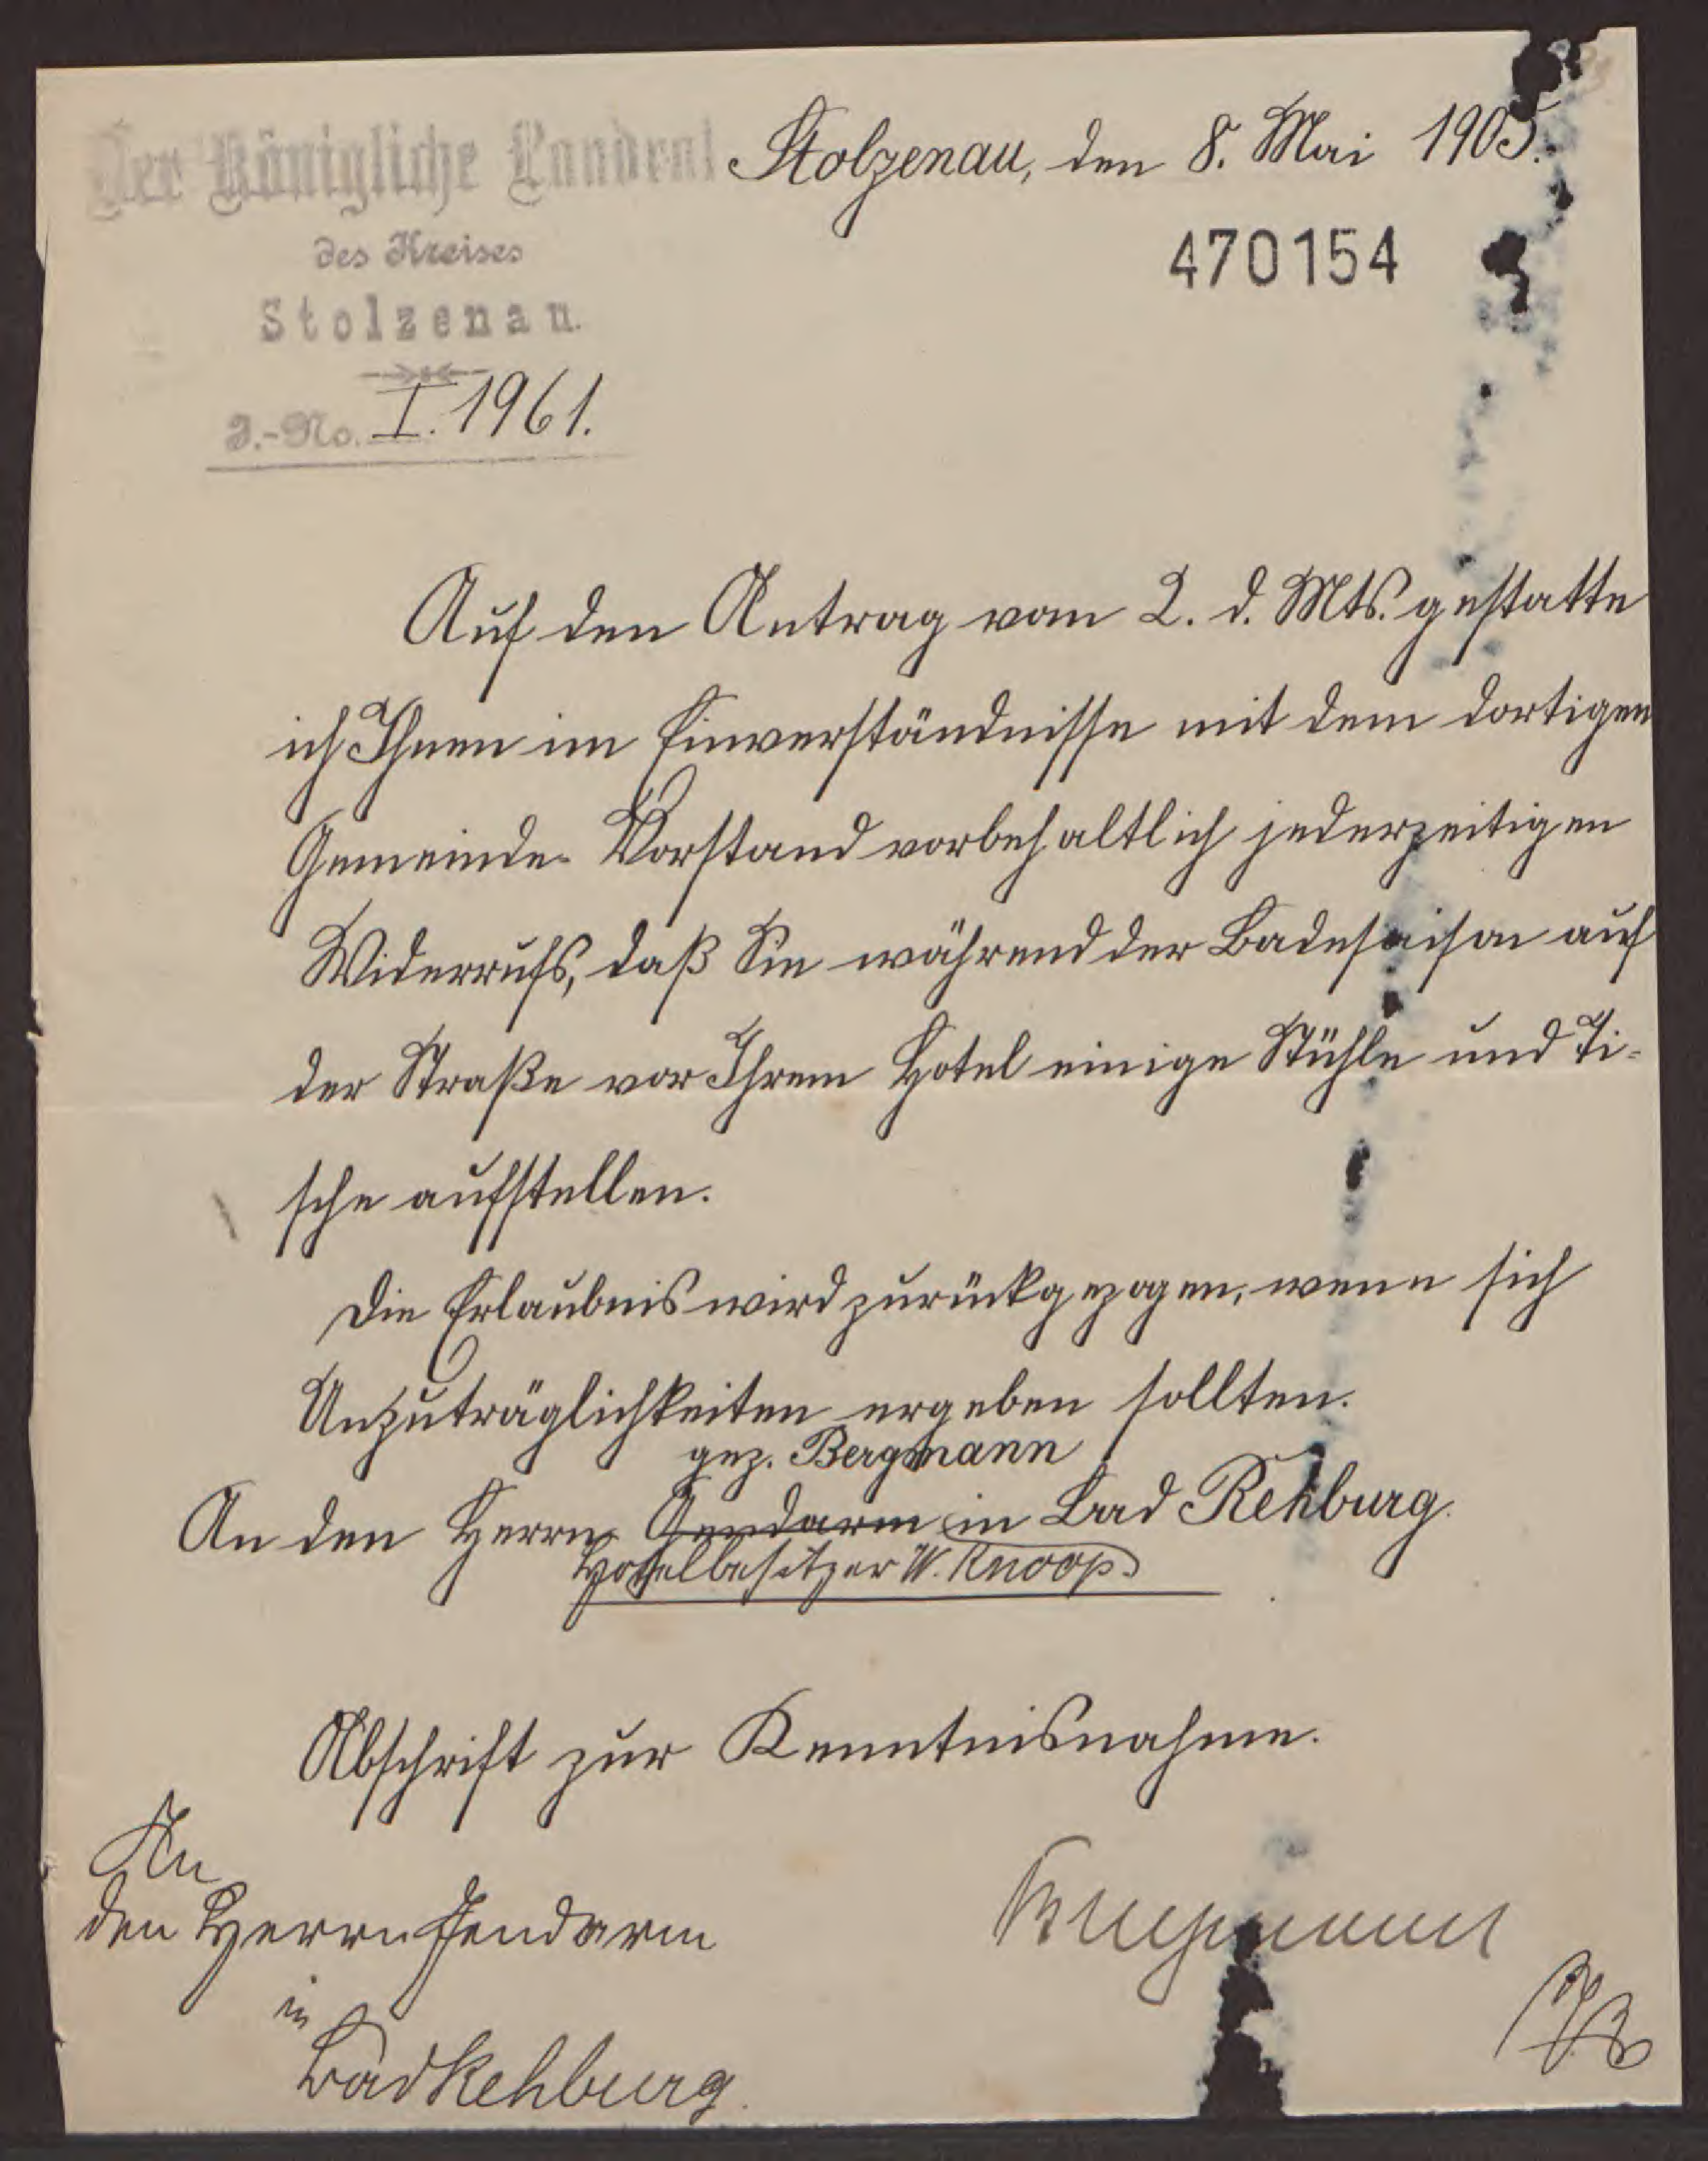 Der Königliche Landrat
des Kreises
Stolzenau.
J.-No. I. 1961.
Stolzenau, den 8. Mai 1905.
470154
Auf den Antrag vom 2. d. Mts. gestatte
ich Ihnen im Einverständnisse mit dem dortigen
Gemeinde-Vorstand vorbehaltlich jederzeitigen
Widerrufs, daß Sie während der Badesaison auf
der Straße vor Ihrem Hotel einige Stühle und Ti-
sche aufstellen.
Die Erlaubnis wird zurückgezogen, wenn sich
Unzuträglichkeiten ergeben sollten.
gez. Bergmann
An den Herrn Gendarm in Bad Rehburg.
Hotelbesitzer W. Knoop
Abschrift zur Kenntnisnahme.
An
den Herrn Gendarm
in
Bad Rehburg.
Bergmann